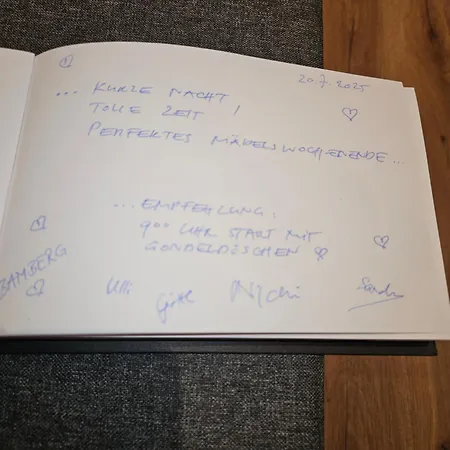 20.7.2025
... KURZE NACHT
TOLLE ZEIT !
PERFEKTES MÄDELSWOCHENENDE ...
... EMPFEHLUNG:
900 UHR START MIT
GONDELDESCHEN
BAMBERG
Ulli
Nichi